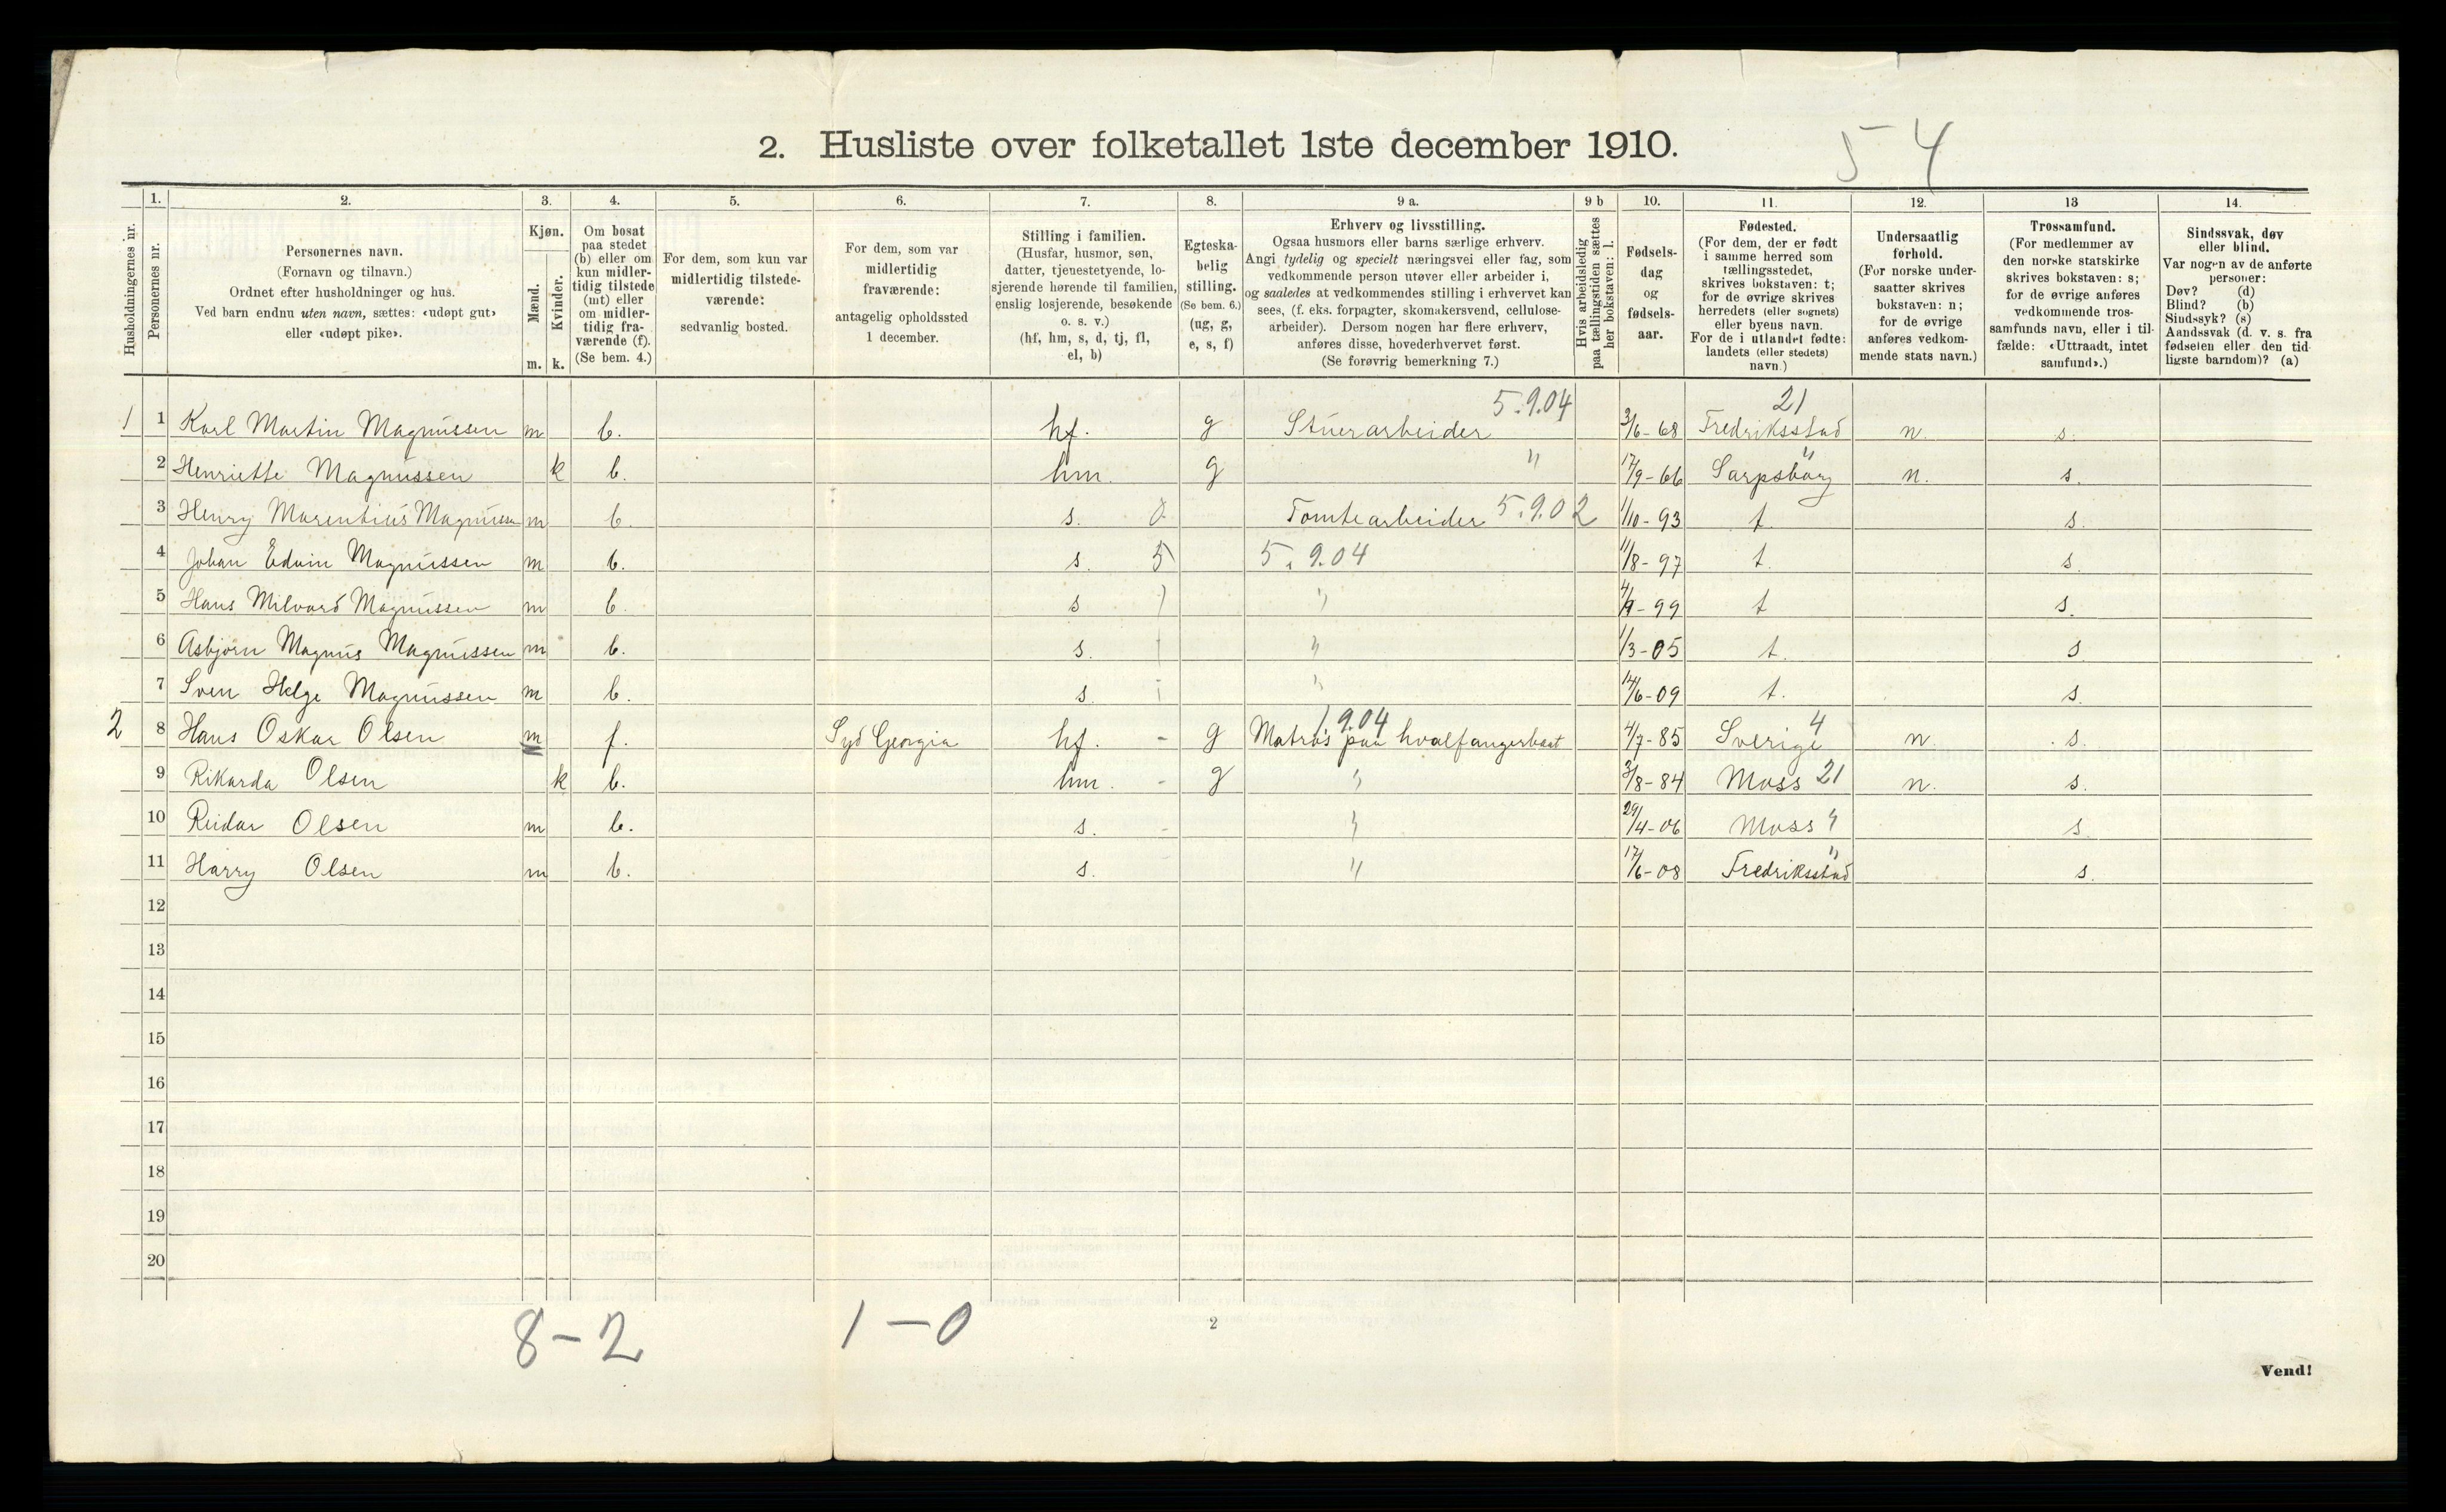 2. Husliste over folketallet 1ste december 1910.
5 4
Husholdningernes nr.
1. Personernes nr.
2. Personernes navn.
(Fornavn og tilnavn.)
Ordnet efter husholdninger og hus.
Ved barn endnu uten navn, sættes: «udøpt gut»
eller «udøpt pike».
3. Kjøn.
Mænd. Kvinder.
m. k.
4. Om bosat
paa stedet
(b) eller om
kun midler-
tidig tilstede
(mt) eller
om midler-
tidig fra-
værende (f).
(Se bem. 4.)
5. For dem, som kun var
midlertidig tilstede-
værende:
sedvanlig bosted.
6. For dem, som var
midlertidig
fraværende:
antagelig opholdssted
1 december.
7. Stilling i familien.
(Husfar, husmor, søn,
datter, tjenestetyende, lo-
sjerende hørende til familien,
enslig losjerende, besøkende
o. s. v.)
(hf, hm, s, d, tj, fl,
el, b)
8. Egteska-
belig
stilling.
(Se bem. 6.)
(ug, g,
e, s, f)
9 a. Erhverv og livsstilling.
Ogsaa husmors eller barns særlige erhverv.
Angi tydelig og specielt næringsvei eller fag, som
vedkommende person utøver eller arbeider i,
og saaledes at vedkommendes stilling i erhvervet kan
sees, (f. eks. forpagter, skomakersvend, cellulose-
arbeider). Dersom nogen har flere erhverv,
anføres disse, hovederhvervet først.
(Se forøvrig bemerkning 7.)
9 b Hvis arbeidsledig
paa tællingstiden sættes
her bokstaven: l.
10. Fødsels-
dag
og
fødsels-
aar.
11. Fødested.
(For dem, der er født
i samme herred som
tællingsstedet,
skrives bokstaven: t;
for de øvrige skrives
herredets (eller sognets)
eller byens navn.
For de i utlandet fødte:
landets (eller stedets)
navn.)
12. Undersaatlig
forhold.
(For norske under-
saatter skrives
bokstaven: n;
for de øvrige
anføres vedkom-
mende stats navn.)
13 Trossamfund.
(For medlemmer av
den norske statskirke
skrives bokstaven: s;
for de øvrige anføres
vedkommende tros-
samfunds navn, eller i til-
fælde: «Uttraadt, intet
samfund».)
14. Sindssvak, døv
eller blind.
Var nogen av de anførte
personer:
Døv? (d)
Blind? (b)
Sindssyk? (s)
Aandssvak (d. v. s. fra
fødselen eller den tid-
ligste barndom)? (a)
5.9.04 21
1 1 Karl Martin Magnussen m b. hf. g Stuerarbeider 3/6-68 Fredriksstad n. s.
2 Henriette Magnussen k b. hm. g " 17/9-66 Sarpsborg " n. s.
3 Henry Marentius Magnussen m b. s. 0 Tomtearbeider 5.9.02 1/10-93 t. s.
4 Johan Edvin Magnussen m b. s. 5 5.9.04 11/8-97 t. s.
5 Hans Milvard Magnussen m b. s " 4/9-99 t s.
6 Asbjørn Magnus Magnussen m b. s. " 1/3-05 t. s
7 Sven Helge Magnussen m b. s. " 14/6-09 t. s.
1 9.04 4
2 8 Hans Oskar Olsen m f. Syd Georgia hf. - g Matros paa hvalfangerbaat 4/7-85 Sverige n. s.
9 Rikarda Olsen k b. hm. - g " 3/8-84 Moss 21 n. s.
10 Reidar Olsen m b. s. - " 29/4-06 Moss " s.
11 Harry Olsen m b. s. " 17/6-08 Fredriksstad " s.
12
13
14
15
16
17
18
19
20
8-2 1-0
2
Vend!